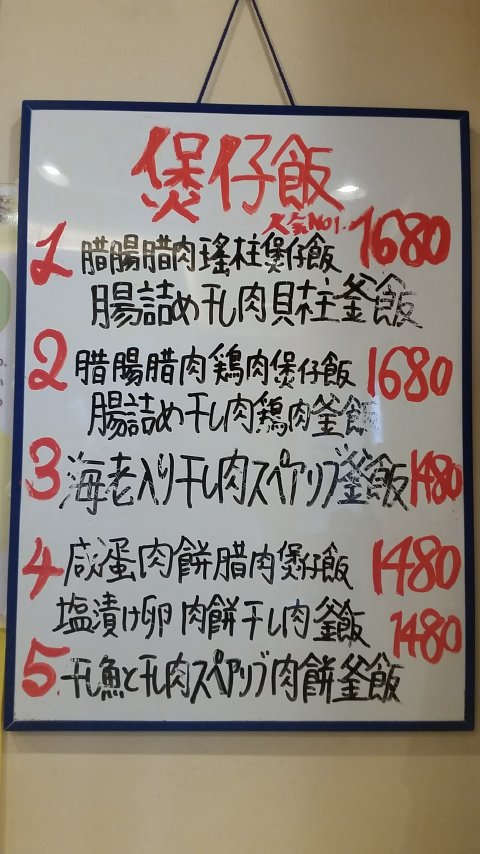 煲仔飯
人気NO1.
1 腊腸腊肉瑤柱煲仔飯 1680
腸詰め干し肉貝柱釜飯
2 腊腸腊肉鶏肉煲仔飯 1680
腸詰め干し肉鶏肉釜飯
3 海老入り干し肉スペアリブ釜飯 1480
4 咸蛋肉餅腊肉煲仔飯 1480
塩漬け卵肉餅干し肉釜飯
5. 干し魚と干し肉スペアリブ肉餅釜飯 1480